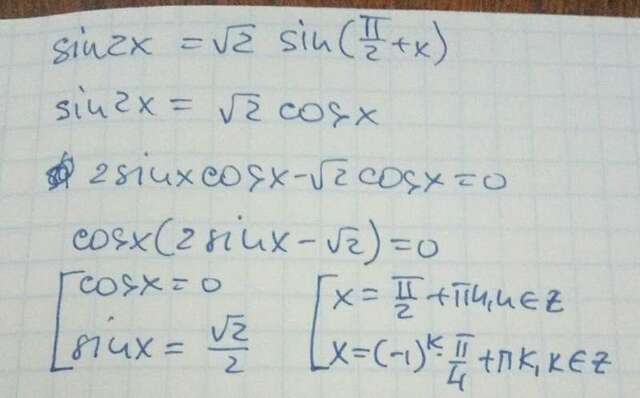 sin2x = √2 sin(π/2 + x)
sin2x = √2 cosx
2sinxcosx - √2 cosx = 0
cosx(2sinx - √2) = 0
[cosx = 0 [x = π/2 + πn, n ∈ Z
[sinx = √2/2 [x = (-1)^k · π/4 + πk, k ∈ Z